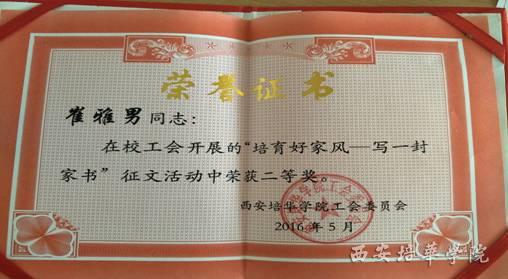 荣誉证书
崔雅男同志：
在校工会开展的“培育好家风—写一封
家书”征文活动中荣获二等奖。
西安培华学院工会委员会
2016年5月
西安培華学院